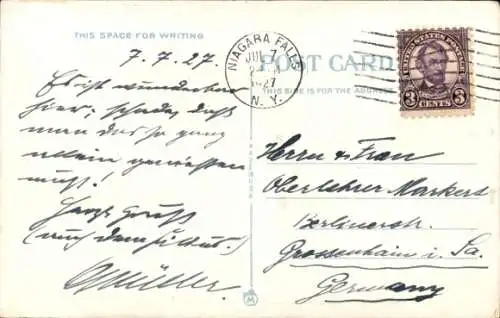 THIS SPACE FOR WRITING
7.7.27.
Es ist wunderbar
hier, schade, daß
man das so ganz
allein genießen
muß!
Herzl. Gruß
(auch dem
GMüller.
NIAGARA FALLS
JUL 7
1927
N. Y.
POST CARD
THIS SIDE IS FOR THE ADDRESS
UNITED STATES POSTAGE
3 CENTS 3
Herrn & Frau
Oberlehrer Markers
Berlinerstr.
Grossenhain i. Sa.
Germany
M